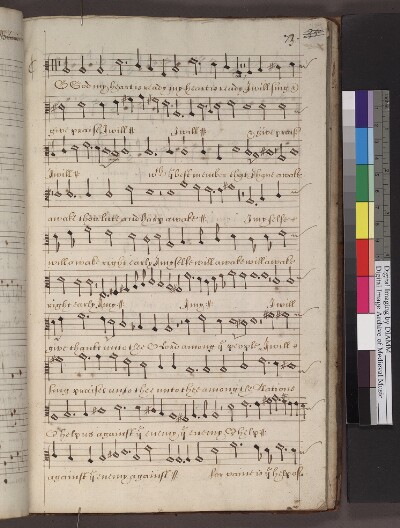 73.
O God my heart is ready my heart is ready I will sing &
give praise I will :||: I will :||: & give praise
I will :||: wth ye best member that I have awake
awake thou lute and harp awake :||: I my selfe
will awake right early I my selfe will awake will awake
right early I my :||: I my :||: I will
give thanks unto thee O Lord among ye people I will
sing praises unto thee unto thee among the Nations
O help us against ye enemy ye enemy O help :||:
against ye enemy against :||: for vaine is ye help of
Digital Imaging by DIAMM
Digital Image Archive of Medieval Music